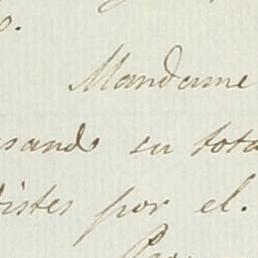 o.
Mandame
usando su tota
distes por el.